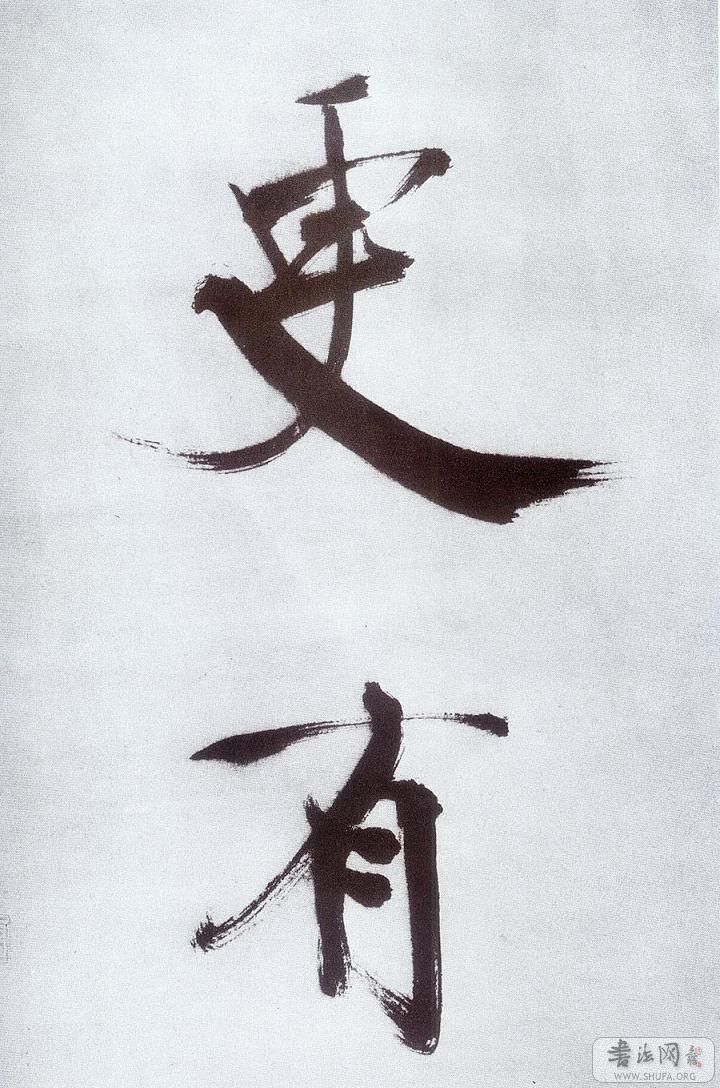 更有
书法网
WWW.SHUFA.ORG